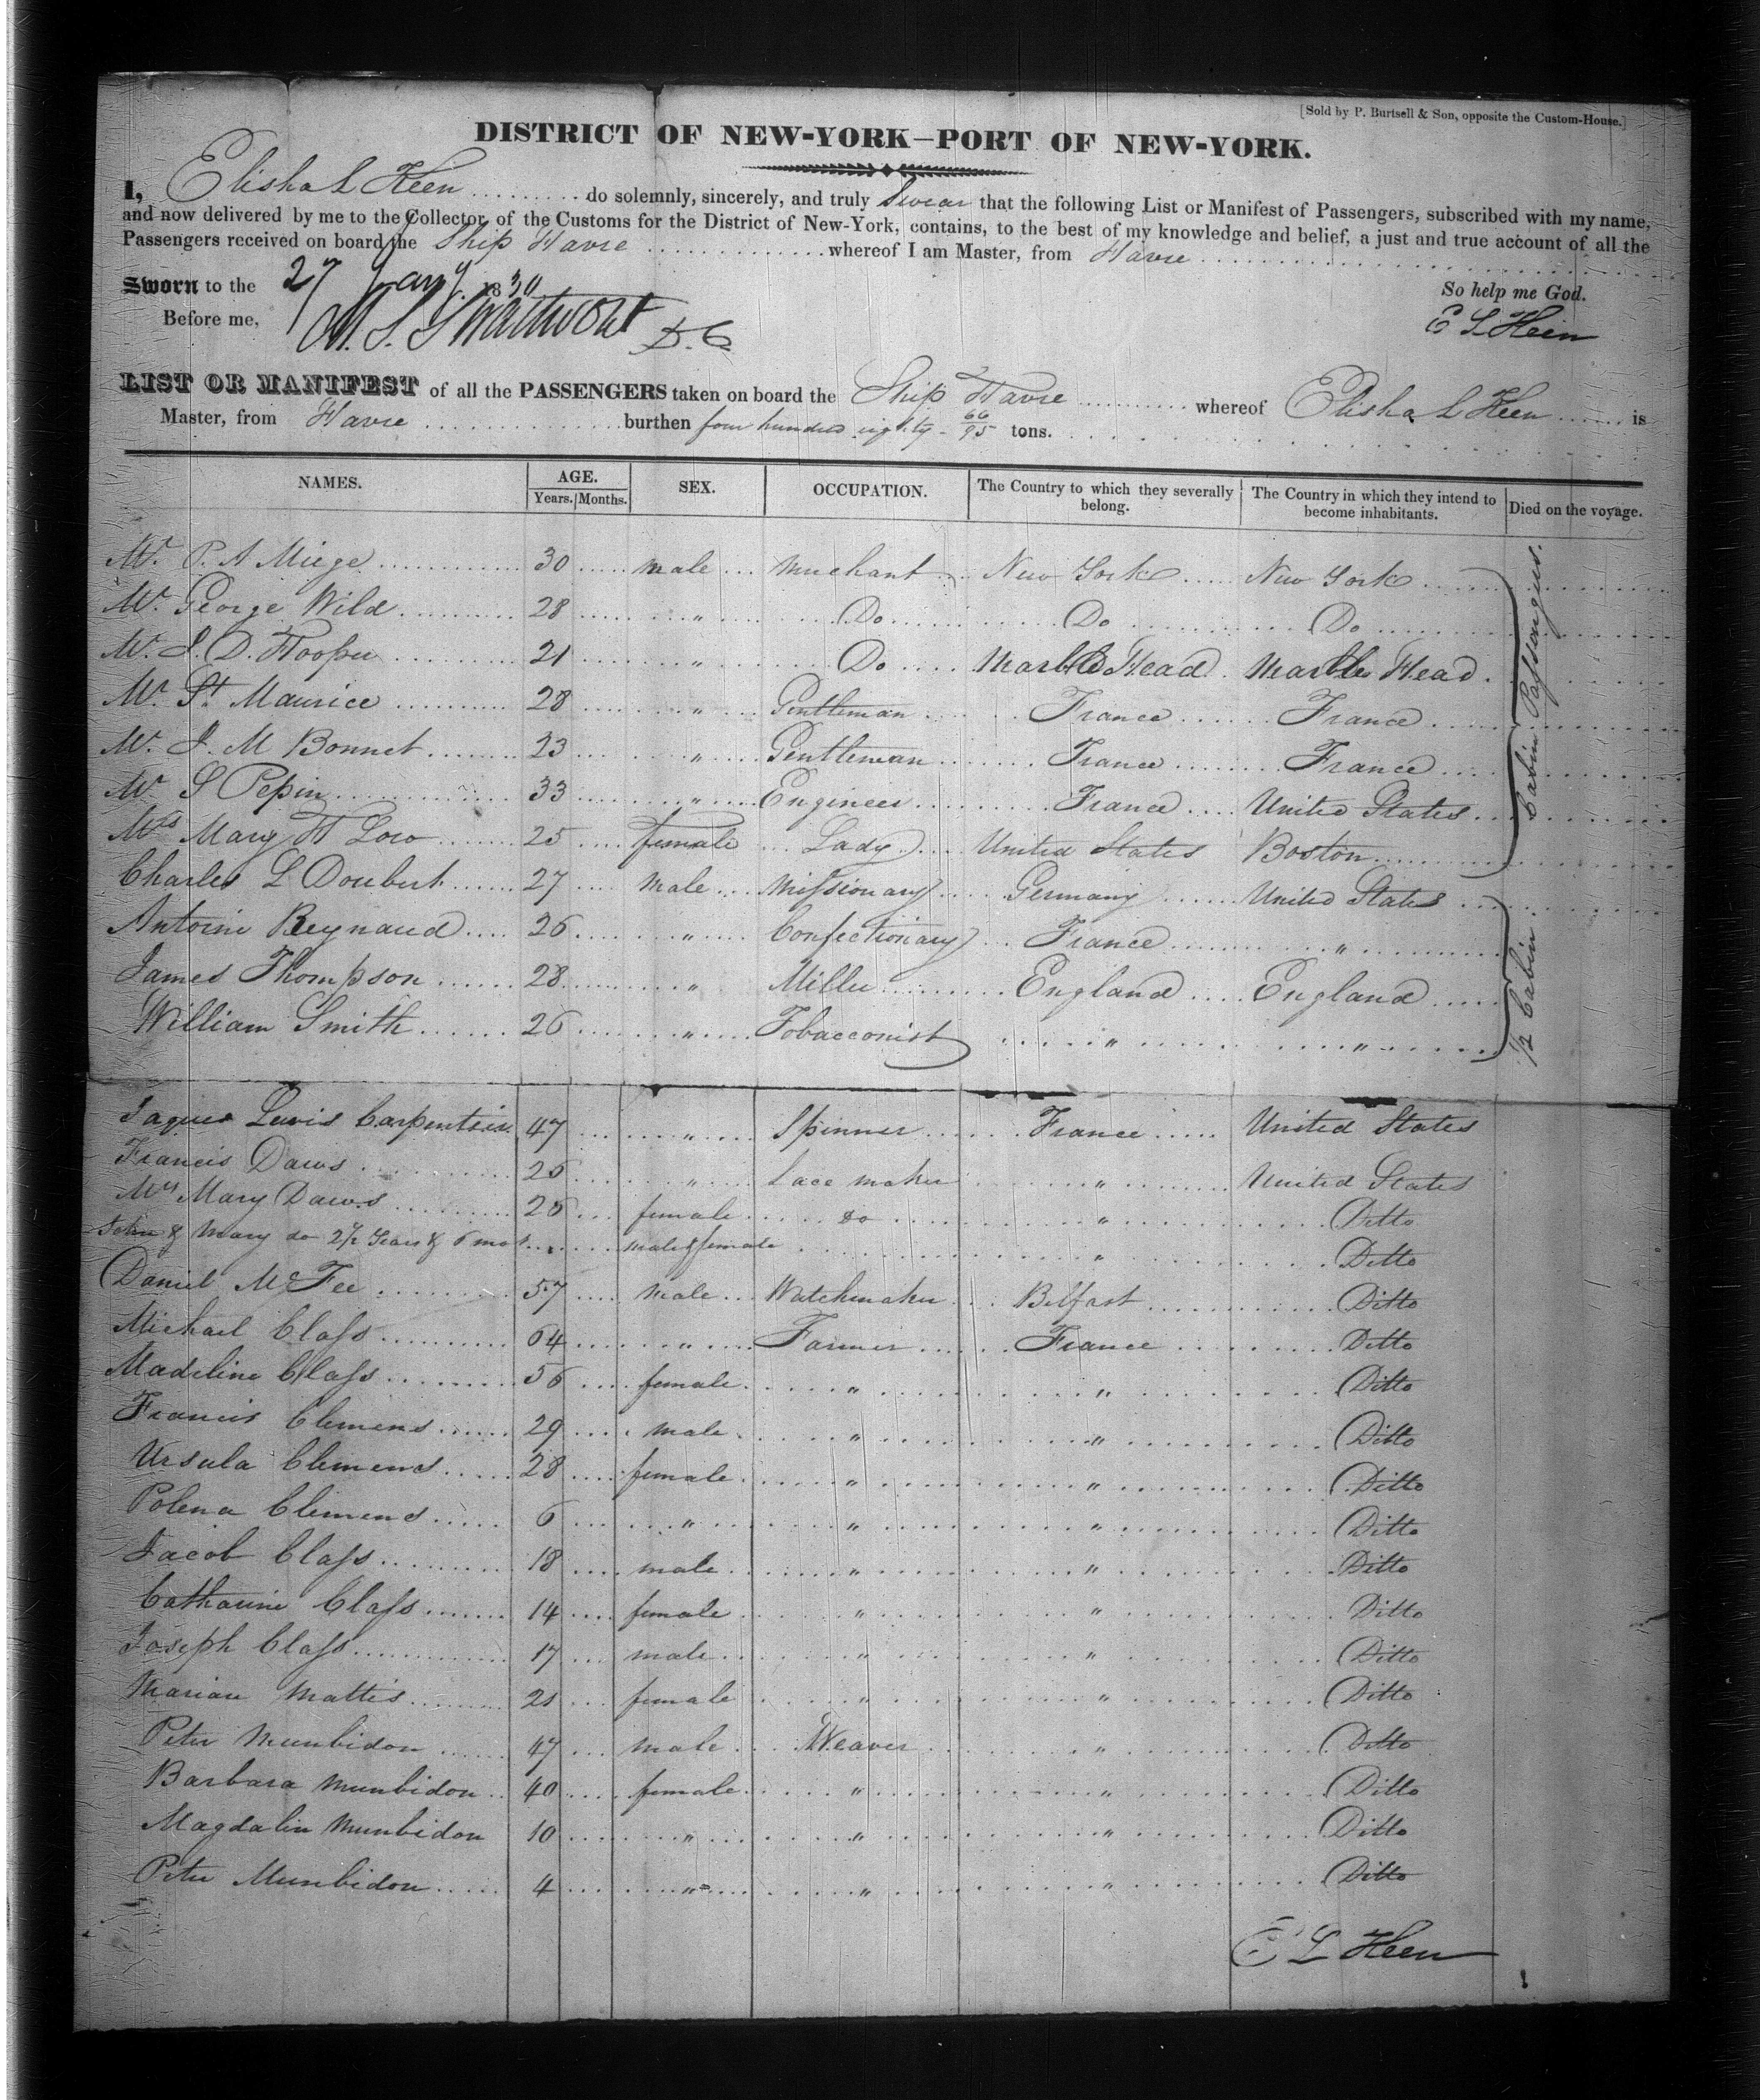 [Sold by P. Burtsell & Son, opposite the Custom-House.]
DISTRICT OF NEW-YORK—PORT OF NEW-YORK.
I, Elisha L Keen do solemnly, sincerely, and truly Swear that the following List or Manifest of Passengers, subscribed with my name,
and now delivered by me to the Collector of the Customs for the District of New-York, contains, to the best of my knowledge and belief, a just and true account of all the
Passengers received on board the Ship Havre whereof I am Master, from Havre
Sworn to the 27 Jany 1830 So help me God.
Before me, M. S. Swartwout D. C. E L Keen
LIST OR MANIFEST of all the PASSENGERS taken on board the Ship Havre whereof Elisha L Keen is
Master, from Havre burthen four hundred eighty - 66/95 tons.
NAMES. AGE. Years. Months. SEX. OCCUPATION. The Country to which they severally belong. The Country in which they intend to become inhabitants. Died on the voyage.
Mr. P. A Miege 30 male Merchant New York New York
Mr. George Wild 28 " Do Do Do
Mr. J. D. Hooper 21 " Do Marble Head Marble Head
Mr. St. Maurice 28 " Gentleman France France
Mr. J. M Bonnet 23 " Gentleman France France
Mr S Pepin 33 " Engineer France United States
Mrs Mary H Low 25 female Lady United States Boston
Cabin Passengers.
Charles L Doubert 27 male Missionary Germany United States
Antoine Reynaud 26 " Confectionary France "
James Thompson 28 " Miller England England
William Smith 26 " Tobacconist " "
1/2 Cabin
Jaques Lewis Carpentier 47 " Spinner France United States
Francis Daws 25 " Lace maker " United States
Mrs Mary Daws 25 female do " Ditto
John & Mary do 2 1/2 Years & 6 mos male & female " Ditto
Daniel McFee 57 male Watchmaker Belfast Ditto
Michael Class 64 " Farmer France Ditto
Madeline Class 56 female " " Ditto
Francis Clemens 29 male " " Ditto
Ursula Clemens 28 female " " Ditto
Polena Clemens 6 " " " Ditto
Jacob Class 18 male " " Ditto
Catharine Class 14 female " " Ditto
Joseph Class 17 male " " Ditto
Marian Mattis 21 female " " Ditto
Peter Munbidon 47 male Weaver " Ditto
Barbara Munbidon 40 female " " Ditto
Magdalin Munbidon 10 " " " Ditto
Peter Munbidon 4 " " " Ditto
E L Keen